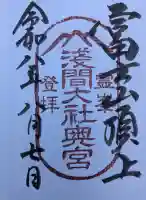 富士山頂上
霊峯
浅間大社奥宮
登拝
令和八年八月七日